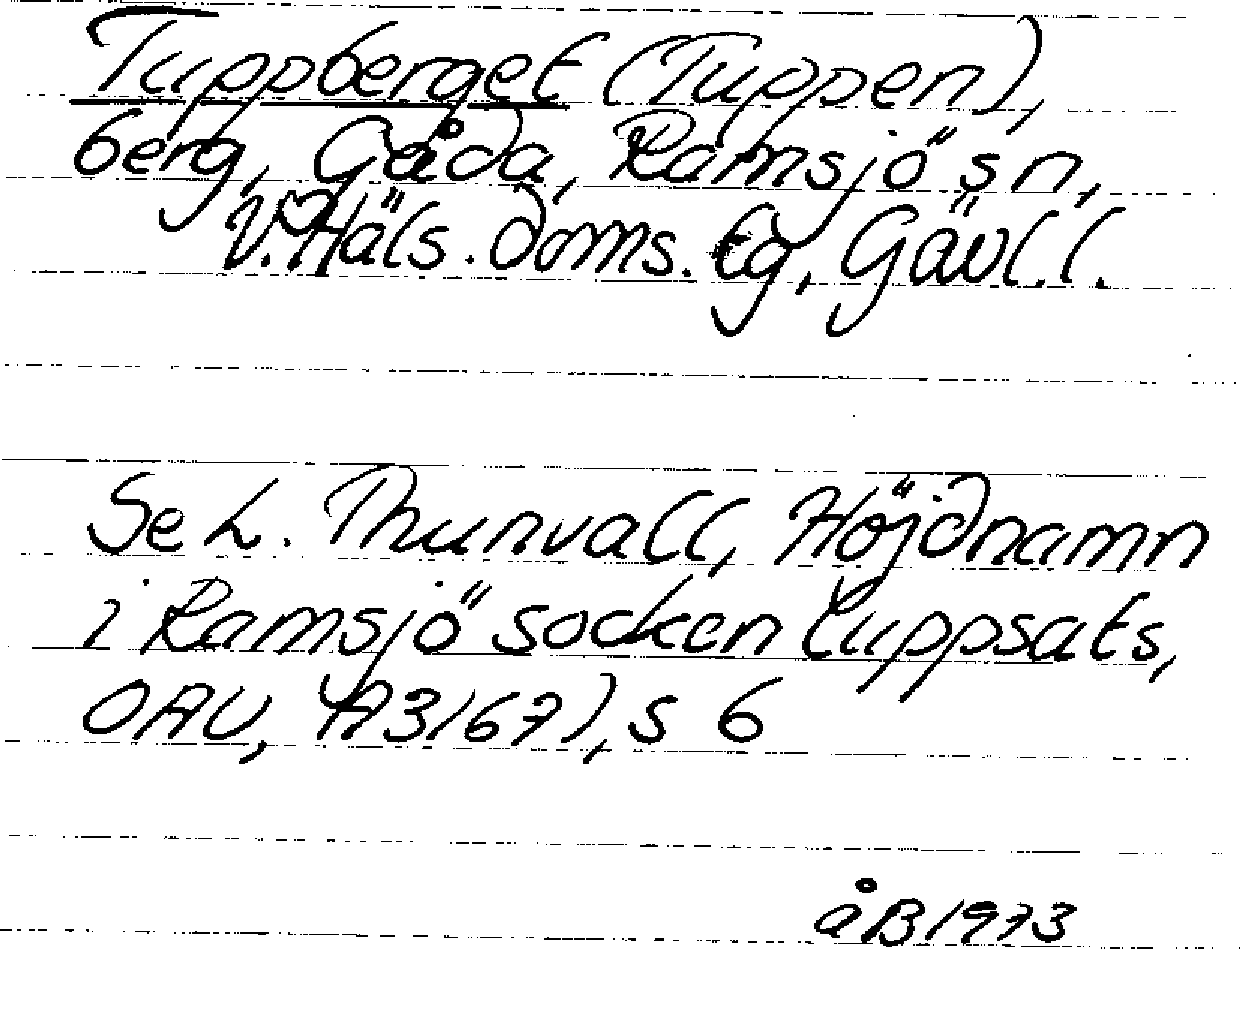 Tuppberget (Tuppen),
berg, Gåda, Ramsjö sn,
V. Häls. doms. tg, Gävl. l.
Se L. Thunvall, Höjdnamn
i Ramsjö socken (uppsats,
OAU, A3167), s 6
åB 1973